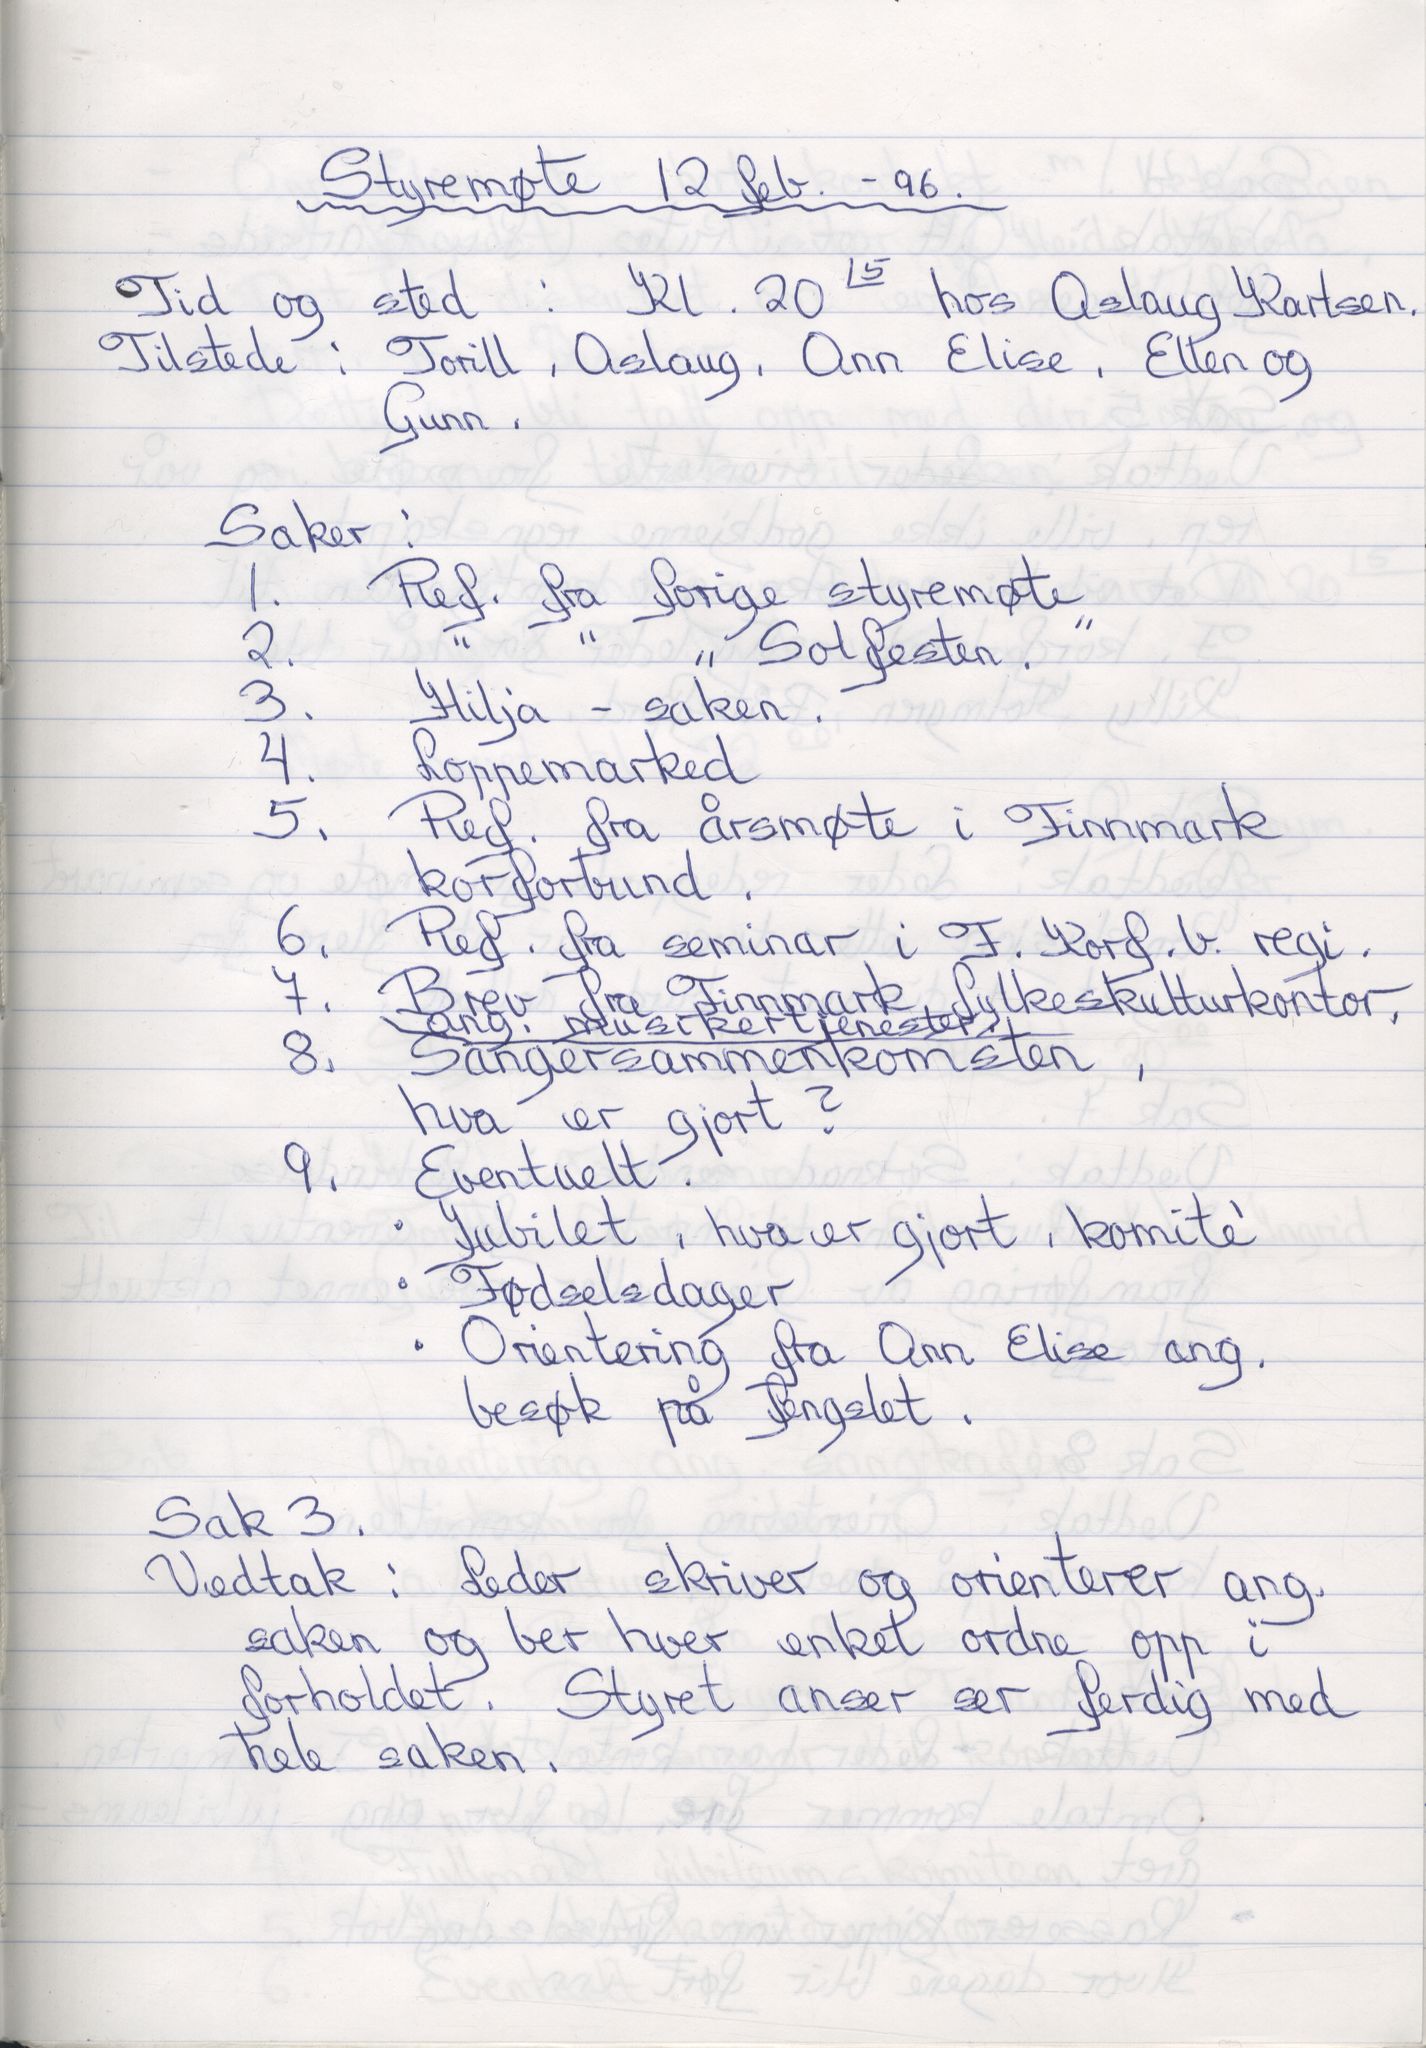 Styremøte 12 feb. - 96.
Tid og sted : Kl. 20 15 hos Aslaug Karlsen.
Tilstede : Torill, Aslaug, Ann Elise, Ellen og
Gunn.
Saker :
1. Ref. fra forige styremøte
2. " " " Solfesten. "
3. Hilja - saken.
4. Loppemarked
5. Ref. fra årsmøte i Finnmark
korforbund.
6. Ref. fra seminar i F. Korf. b. regi.
7. Brev fra Finnmark fylkeskulturkontor,
ang. musikertjenester.
8. Sangersammenkomsten,
hva er gjort?
9. Eventuelt.
• Jubilet, hva er gjort, komité
• Fødselsdager
• Orientering fra Ann Elise ang.
besøk på fengslet.
Sak 3.
Vedtak : Leder skriver og orienterer ang.
saken og ber hver enkel ordne opp i
forholdet. Styret anser ser ferdig med
hele saken.